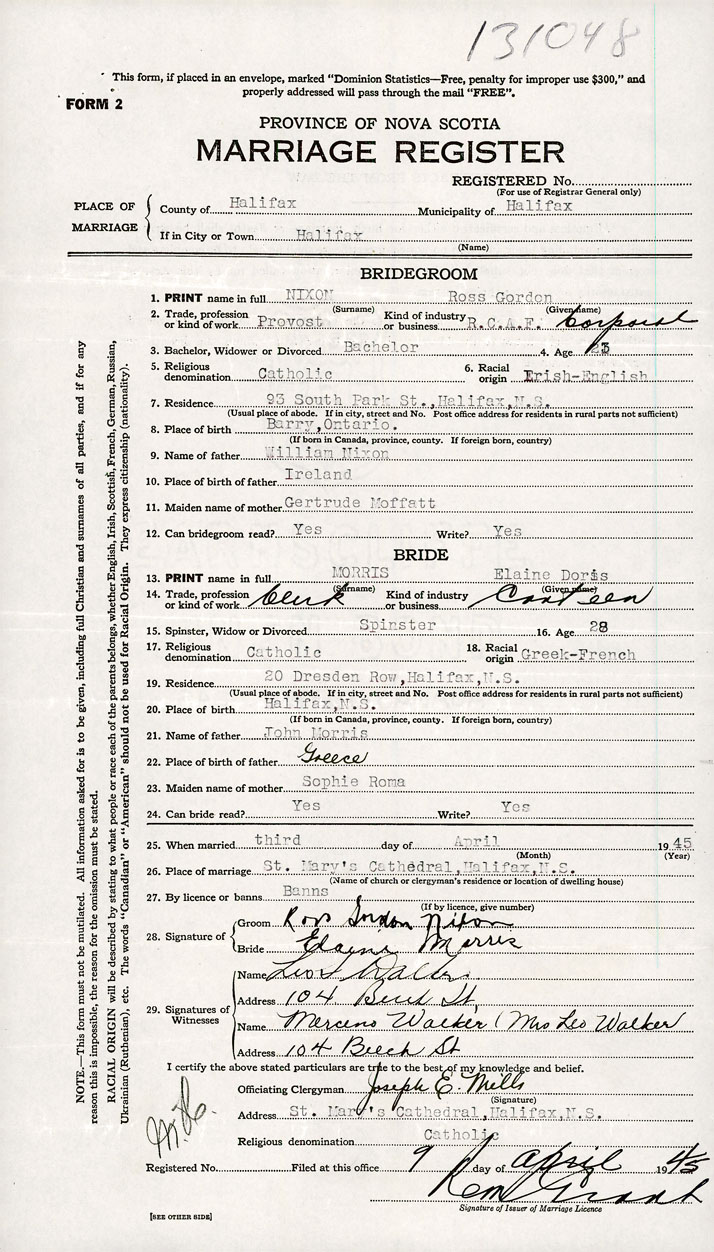 131048
This form, if placed in an envelope, marked "Dominion Statistics—Free, penalty for improper use $300," and
properly addressed will pass through the mail "FREE".
FORM 2
PROVINCE OF NOVA SCOTIA
MARRIAGE REGISTER
REGISTERED No.
(For use of Registrar General only)
PLACE OF MARRIAGE
County of Halifax Municipality of Halifax
If in City or Town Halifax
(Name)
BRIDEGROOM
1. PRINT name in full NIXON Ross Gordon
(Surname) (Given name)
2. Trade, profession or kind of work Provost Kind of industry or business R.C.A.F. Corporal
3. Bachelor, Widower or Divorced Bachelor 4. Age 23
5. Religious denomination Catholic 6. Racial origin Irish-English
7. Residence 93 South Park St.,Halifax,N.S.
(Usual place of abode. If in city, street and No. Post office address for residents in rural parts not sufficient)
8. Place of birth Barry,Ontario.
(If born in Canada, province, county. If foreign born, country)
9. Name of father William Nixon
10. Place of birth of father Ireland
11. Maiden name of mother Gertrude Moffatt
12. Can bridegroom read? Yes Write? Yes
BRIDE
13. PRINT name in full MORRIS Elaine Doris
(Surname) (Given name)
14. Trade, profession or kind of work Clerk Kind of industry or business Canteen
15. Spinster, Widow or Divorced Spinster 16. Age 28
17. Religious denomination Catholic 18. Racial origin Greek-French
19. Residence 20 Dresden Row,Halifax,N.S.
(Usual place of abode. If in city, street and No. Post office address for residents in rural parts not sufficient)
20. Place of birth Halifax,N.S.
(If born in Canada, province, county. If foreign born, country)
21. Name of father John Morris
22. Place of birth of father Greece
23. Maiden name of mother Sophie Roma
24. Can bride read? Yes Write? Yes
25. When married third day of April 1945
(Month) (Year)
26. Place of marriage St. Mary's Cathedral,Halifax,N.S.
(Name of church or clergyman's residence or location of dwelling house)
27. By licence or banns Banns
(If by licence, give number)
28. Signature of
Groom Ross Gordon Nixon
Bride Elaine Morris
29. Signatures of Witnesses
Name Leo Walker
Address 104 Beech St,
Name Merceno Walker (Mrs Leo Walker
Address 104 Beech St
I certify the above stated particulars are true to the best of my knowledge and belief.
Officiating Clergyman Joseph E. Mills
(Signature)
Address St. Mary's Cathedral,Halifax,N.S.
Religious denomination Catholic
Registered No. Filed at this office 9 day of April 1945
Signature of Issuer of Marriage Licence
[SEE OTHER SIDE]
NOTE.—This form must not be mutilated. All information asked for is to be given, including full Christian and surnames of all parties, and if for any
reason this is impossible, the reason for the omission must be stated.
RACIAL ORIGIN will be described by stating to what people or race each of the parents belongs, whether English, Irish, Scottish, French, German, Russian,
Ukrainian (Ruthenian), etc. The words "Canadian" or "American" should not be used for Racial Origin. They express citizenship (nationality).